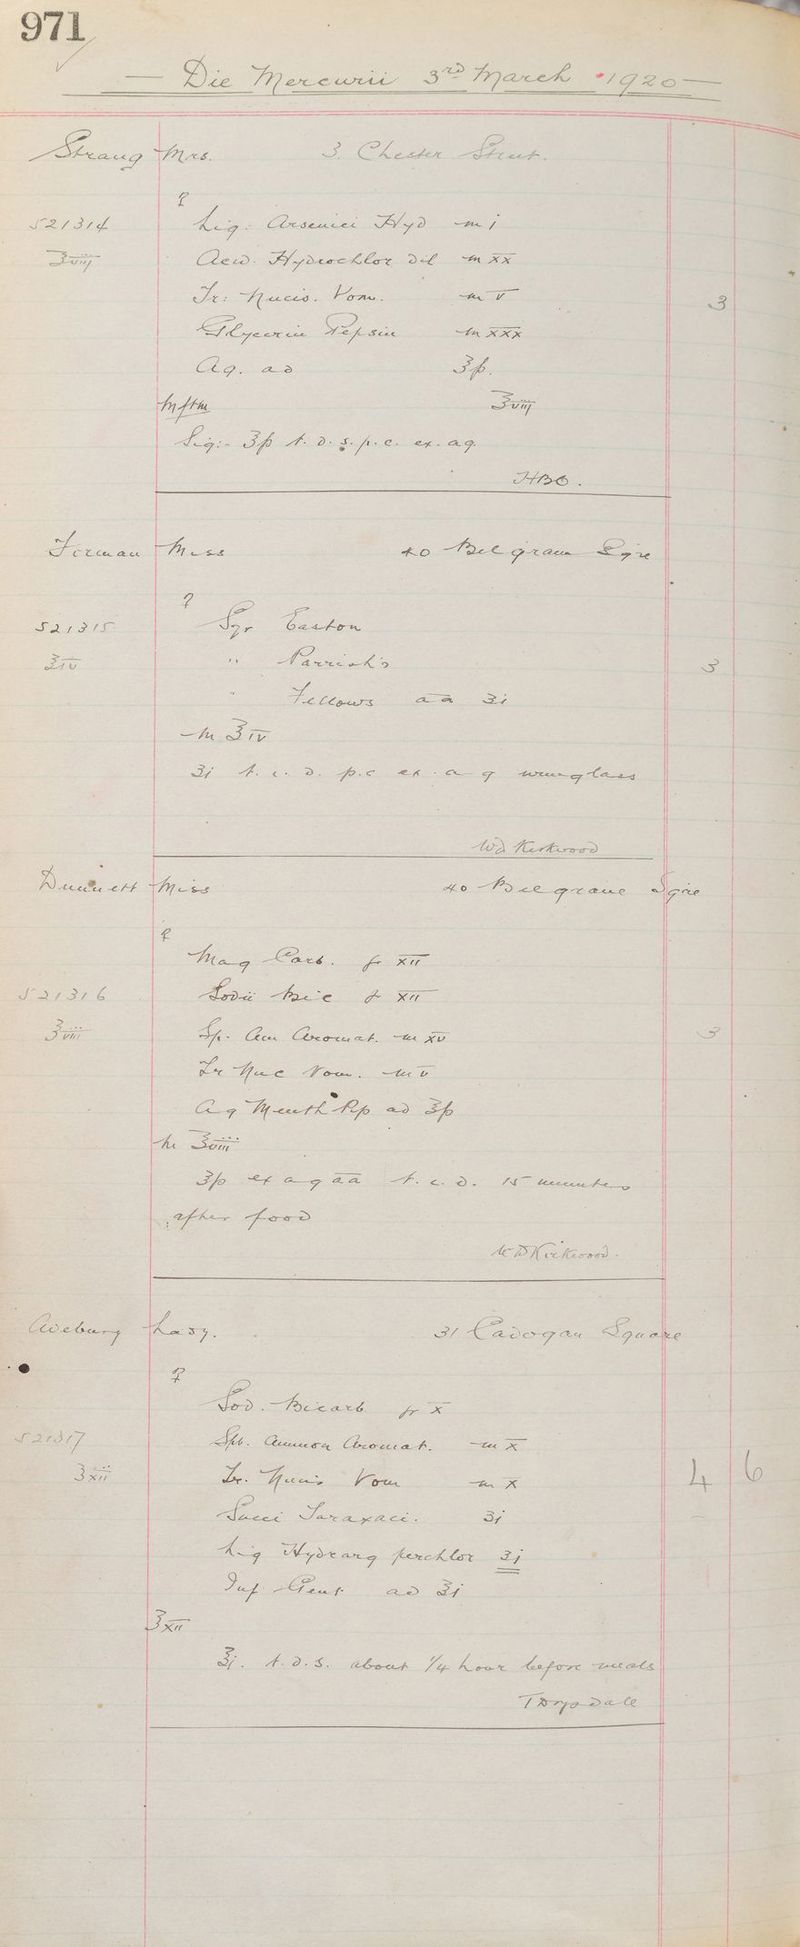 971
— Die Mercurii 3rd March 1920 —
Strang Mrs. 3. Chester Street.
℞
521314 Liq: Arsenici Hyd ♏ i
℥viij Acid. Hydrochlor Dil ♏ xx
Tr: Nucis. Vom. ♏ v 3
Glycerin Pepsin ♏ xxx
Aq. ad ℥ß.
Mftm ℥viij
Sig:- ℥ß t. d. s. p. c. ex. aq.
HBO.
Forman Miss 40 Belgrave Sqre
℞
521315 Syr Easton
℥iv " Parrish's 3
" Fellows aa ʒi
M ℥iv
ʒi t. i. d. p.c ex. aq wineglass
WD Kirkwood
Dunnett Miss 40 Belgrave Sqre
℞
Mag Carb. gr xii
521316 Sodii Bic gr xii
℥viii Sp. Am Aromat. ♏ xv 3
Tr Nuc Vom. ♏ v
Aq Menth Pip ad ℥ß
M ℥viii
℥ß ex aq aa t. i. d. 15 minutes
after food
W D Kirkwood.
Avebury Lady. 31 Cadogan Square
℞
Sod. Bicarb gr x
521317 Spt. Ammon Aromat. ♏ x
℥xii Tr. Nucis Vom ♏ x 4 6
Succi Taraxaci. ʒi
Liq Hydrarg perchlor ʒi
Inf Gent ad ℥i
℥xii
℥i. t. d. s. about 1/4 hour before meals
T Drysdale